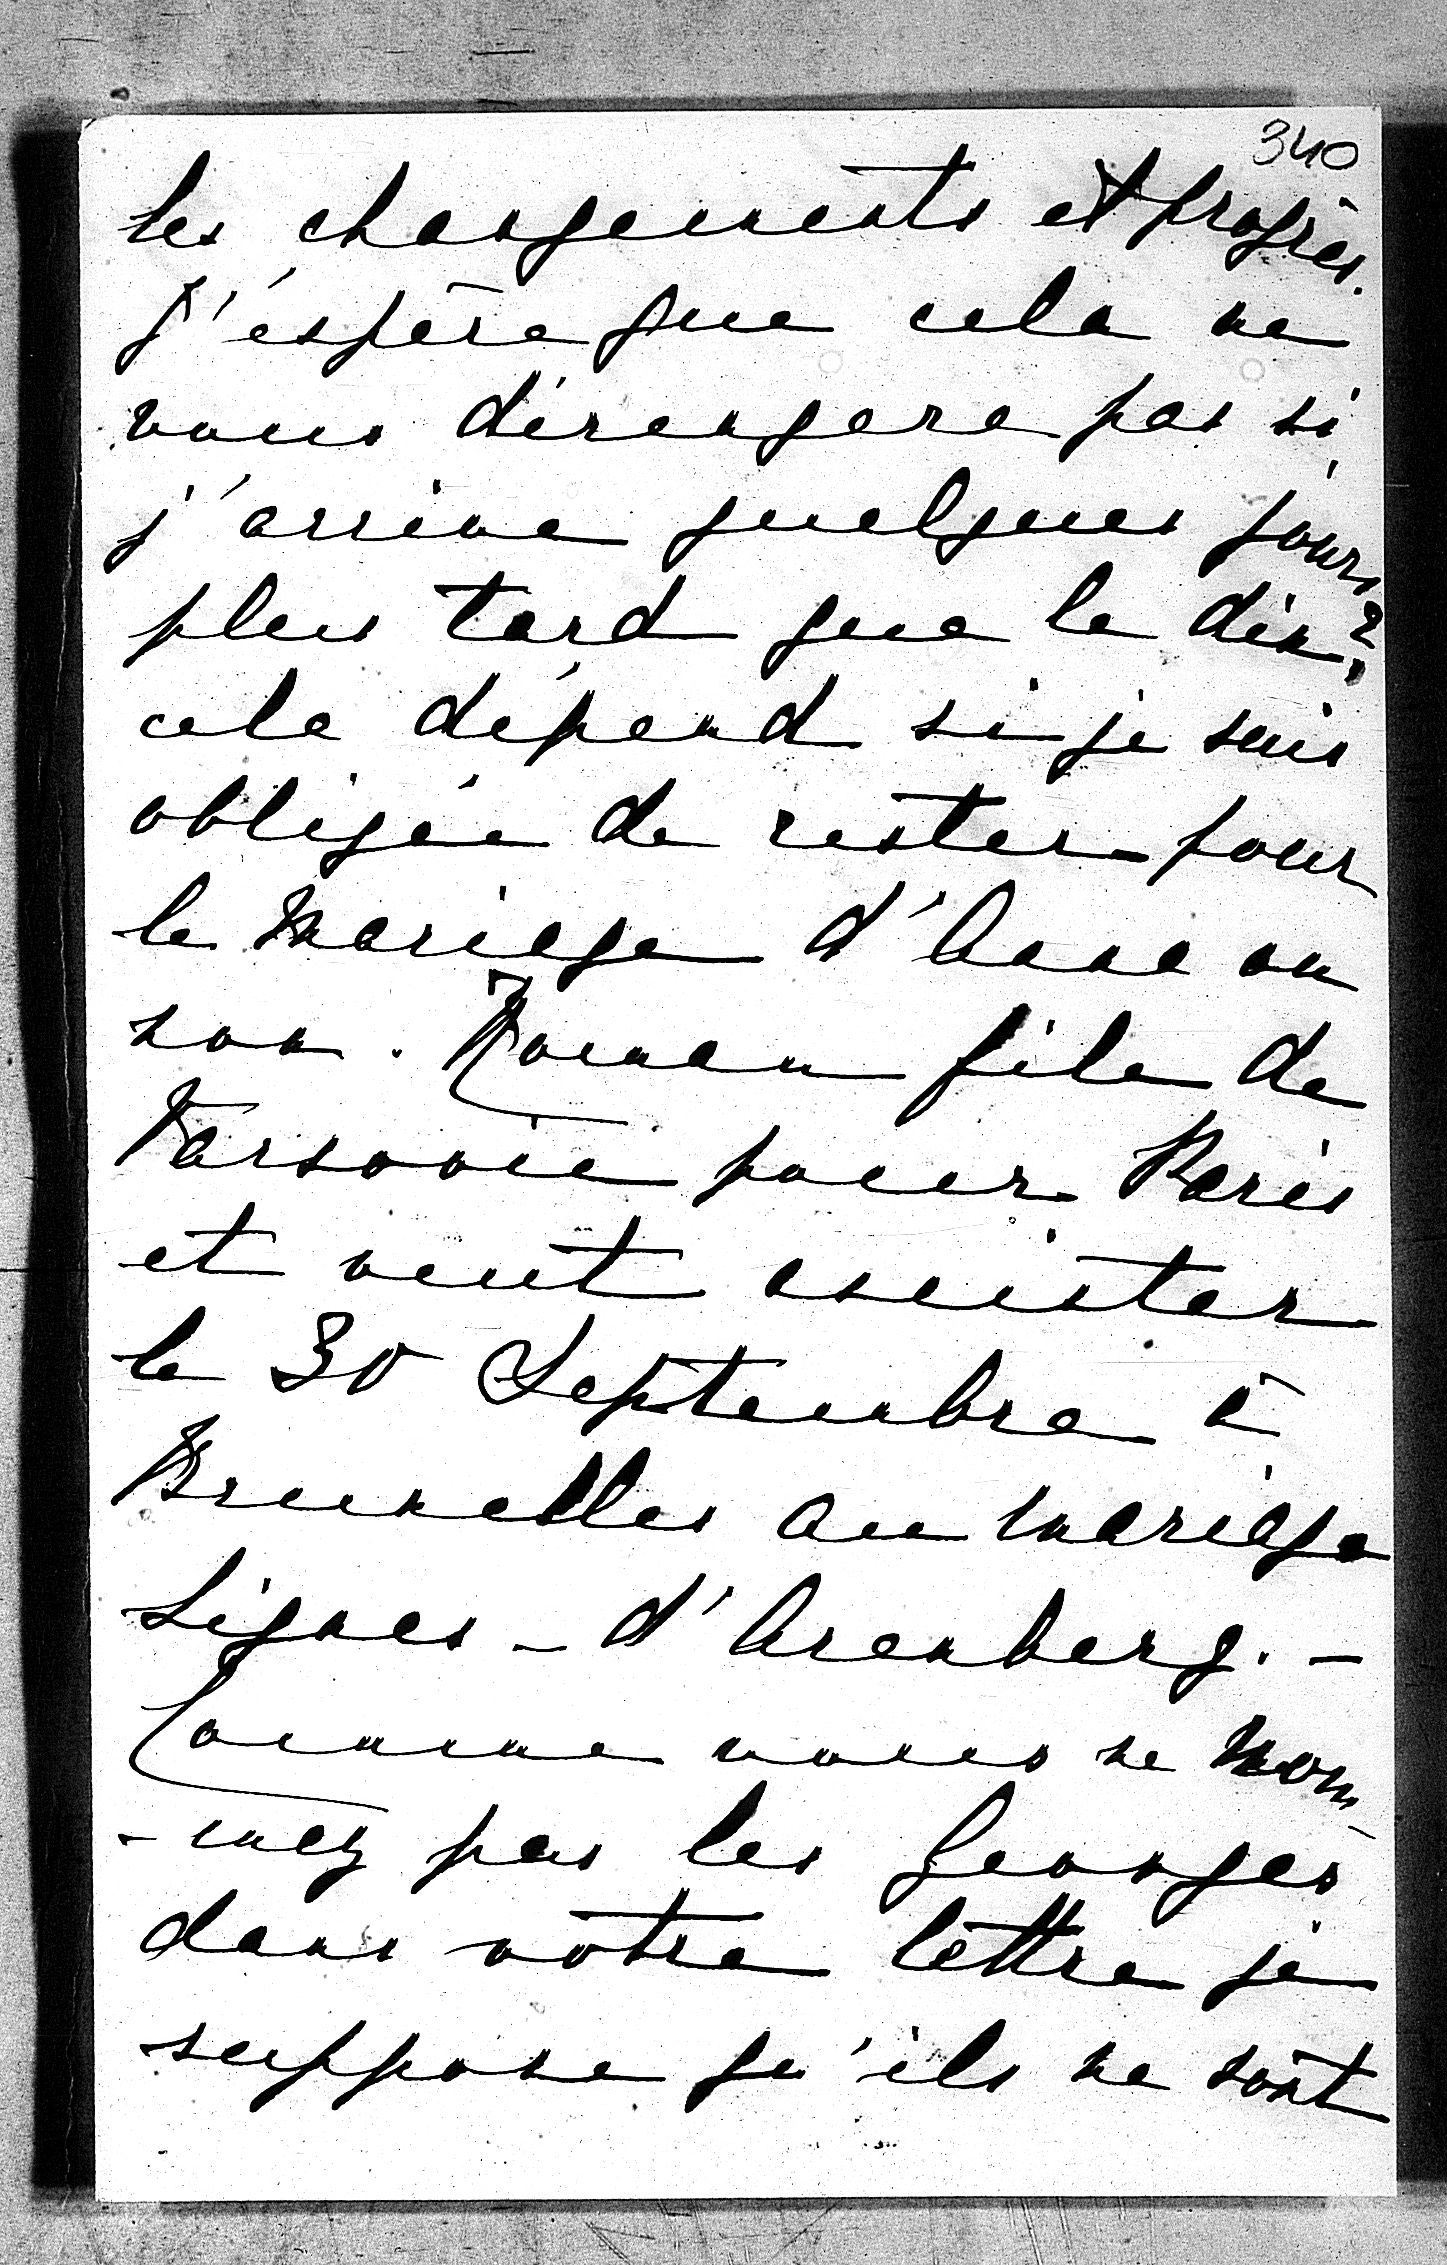 340
les changements et progrès.
J'éspère que cela ne
vous dérangera pas si
j'arrive quelques jours
plus tard que le dix?
cela dépend si je suis
obligée de rester pour
le mariage d'Anna ou
non. Roman file de
Varsovie pour Paris
et veut assister
le 30 Septembre à
Bruxelles au mariage
Lignes - d'Arenberg. -
Comme vous ne nom-
-mez pas les Georges
dans votre lettre je
suppose qu'ils ne sont